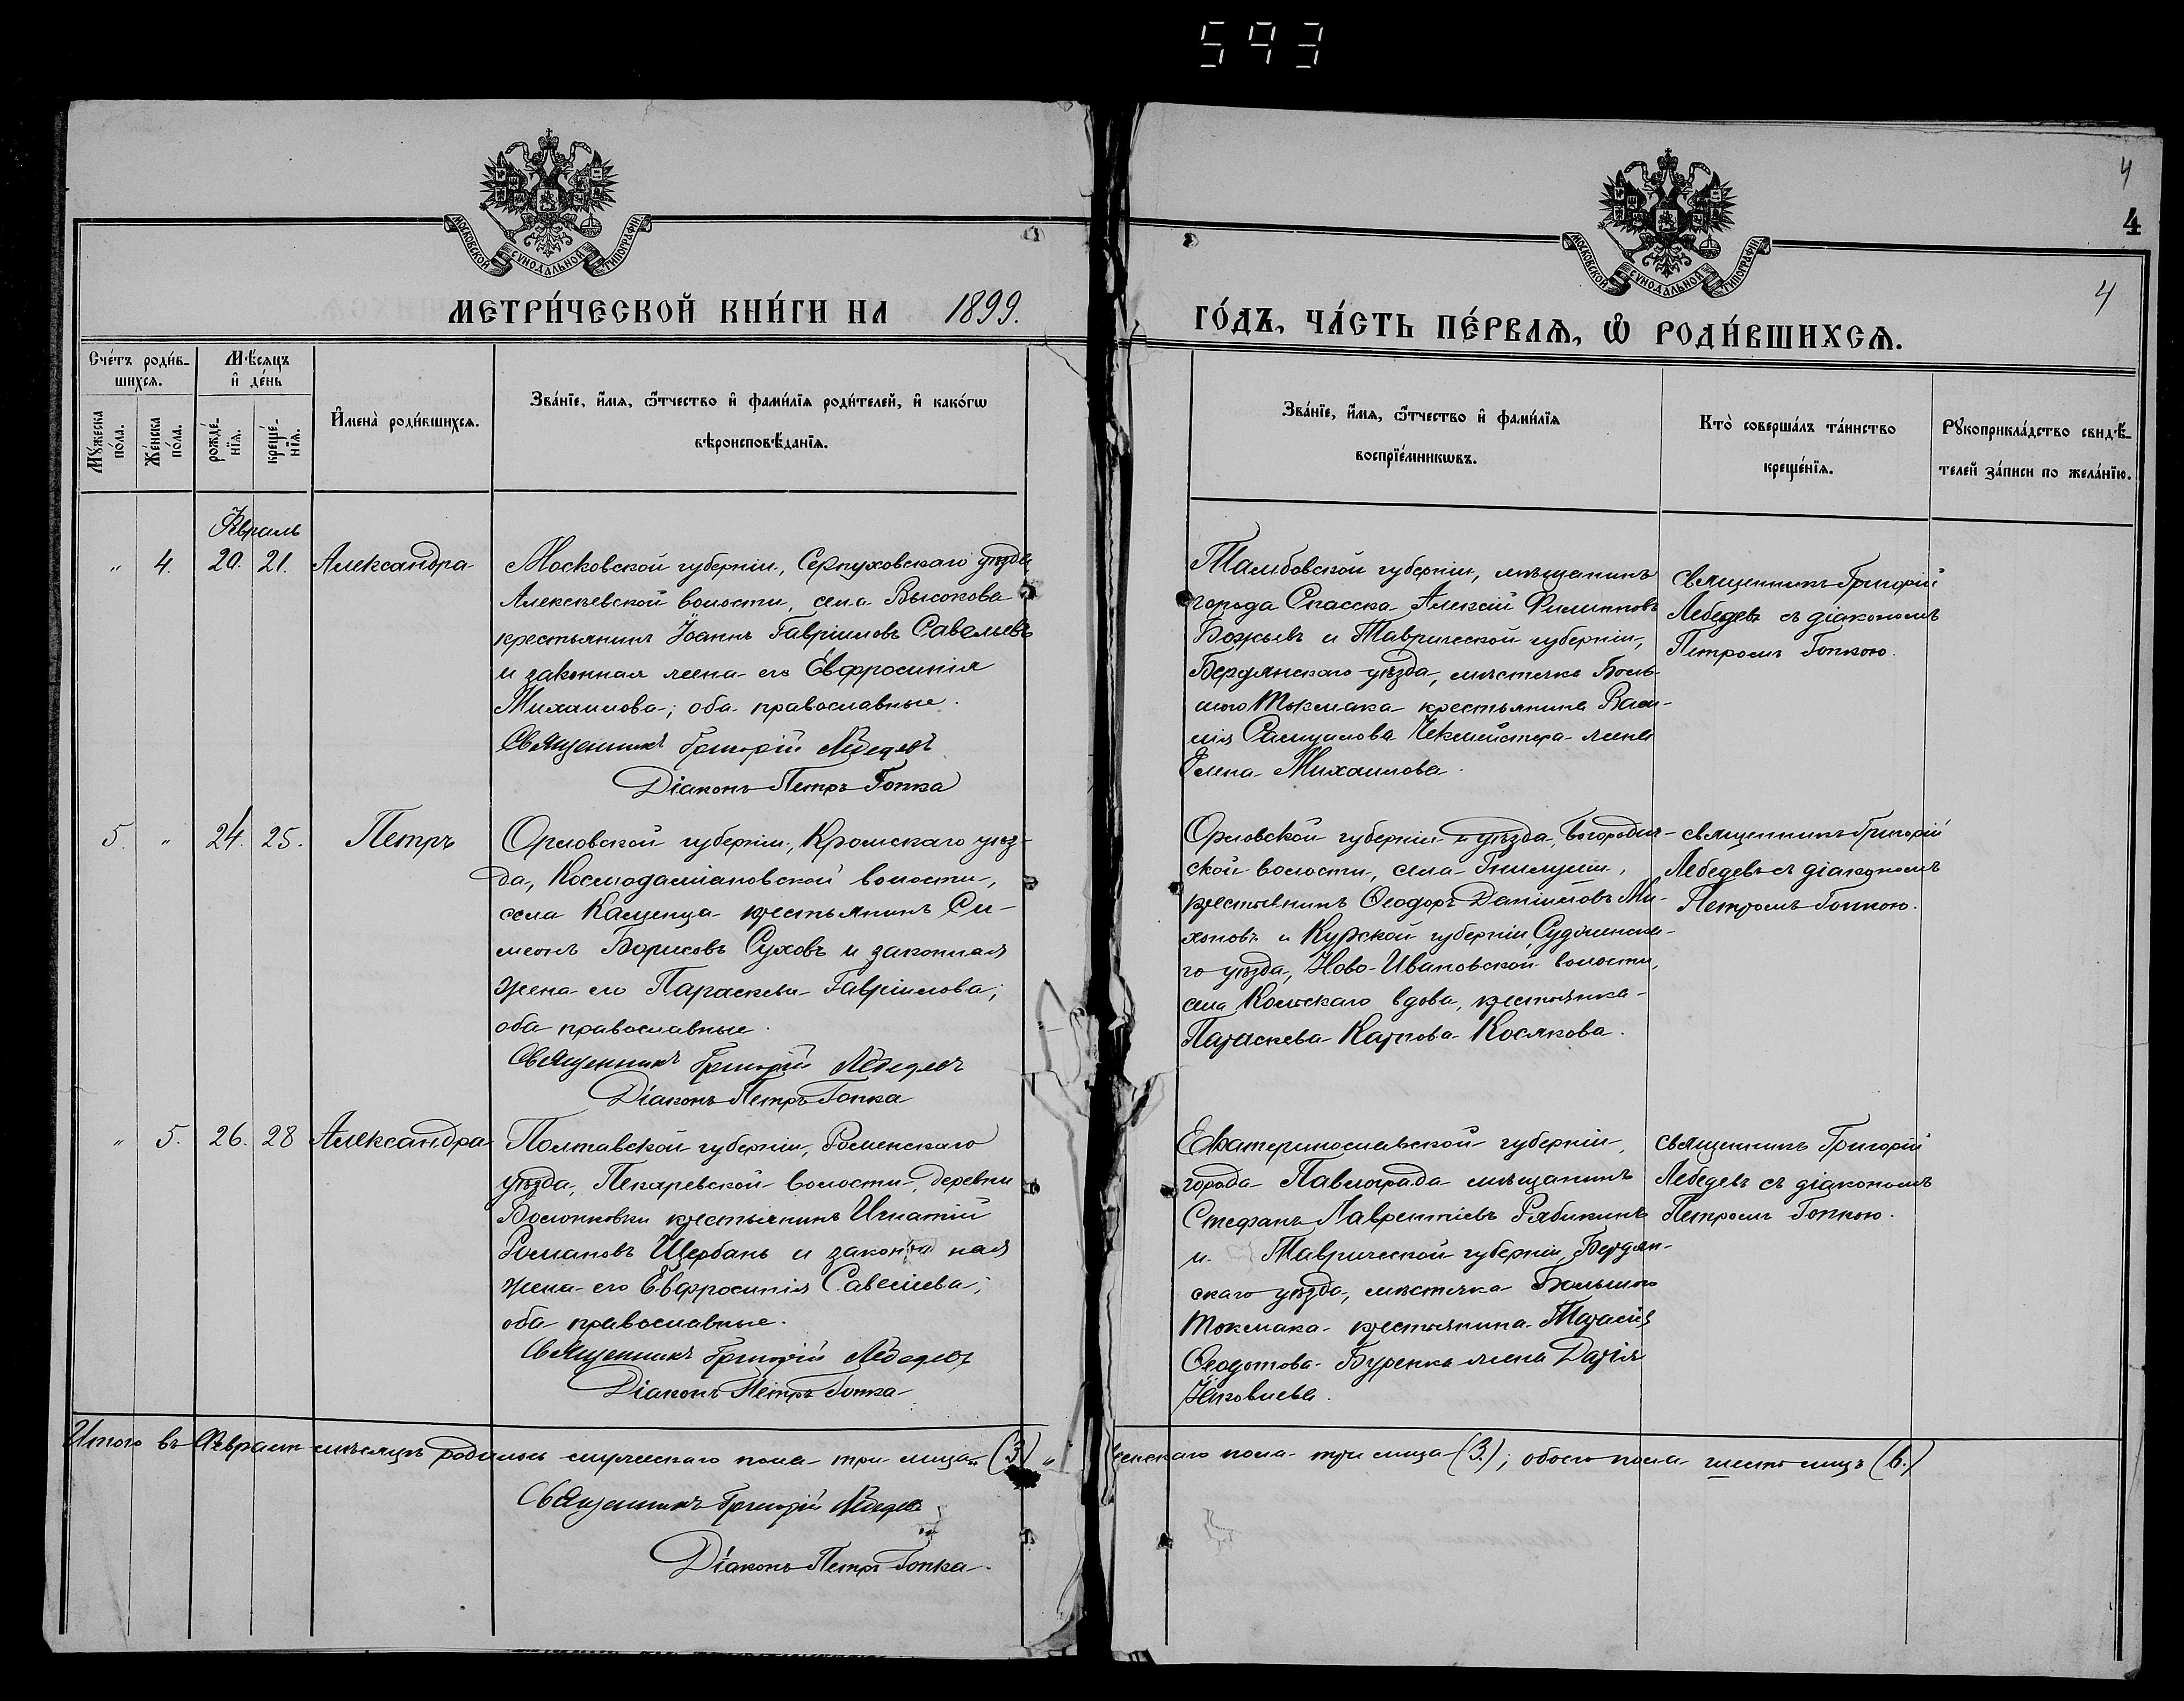 593
4
4
МОСКОВСКОЙ СѴНОДАЛЬНОЙ ТИПОГРАФІИ
МОСКОВСКОЙ СѴНОДАЛЬНОЙ ТИПОГРАФІИ
4
МЕТРИ́ЧЕСКОЙ КНИ́ГИ НА 1899.
ГО́ДЪ, ЧА́СТЬ ПЕ́РВАѦ, Ѽ РОДИ́ВШИХСѦ.
Сче́тъ роди́в-
шихсѧ.
Мꙋ́жеска по́ла.
Же́нска по́ла.
Мѣ́сѧцъ
и҆ де́нь
рожде́-
нїѧ.
креще́-
нїѧ.
И҆мена̀ роди́вшихсѧ.
Зва́нїе, и҆́мѧ, ѻ҆́тчество и҆ фами́лїѧ роди́телей, и҆ како́гѡ
вѣроисповѣ́данїѧ.
Зва́нїе, и҆́мѧ, ѻ҆́тчество и҆ фами́лїѧ
воспрїе́мникѡвъ.
Кто̀ соверша́лъ та́инство
креще́нїѧ.
Рꙋкоприкла́дство свидѣ́-
телей за́писи по жела́нїю.
Февраль
" 4. 20. 21. Александра
Московской губерніи, Серпуховскаго уѣзда
Алексѣевской волости, села Высокова
крестьянинъ Іоаннъ Гавріиловъ Савельевъ
и законная жена его Евфросинія
Михаилова; оба православные.
Священникъ Григорій Лебедевъ
Діаконъ Петръ Гопка
Тамбовской губерніи, мѣщанинъ
города Спасска Алексій Филипповъ
Божьевъ и Таврической губерніи,
Бердянскаго уѣзда, мѣстечка Боль-
шого Токмака крестьянина Васи-
лія Самуилова Чекмейстера жена
Елена Михаилова.
священникъ Григорій
Лебедевъ съ діакономъ
Петромъ Гопкою.
5. " 24. 25. Петръ
Орловской губерніи, Кромскаго уѣз-
да, Космодаміановской волости,
села Каменца крестьянинъ Си-
меонъ Борисовъ Суховъ и законная
жена его Параскева Гавріилова;
оба православные.
Священникъ Григорій Лебедевъ
Діаконъ Петръ Гопка
Орловской губерніи и уѣзда, Богородиц-
ской волости, села
крестьянинъ Ѳеодоръ Даніиловъ Ми-
хоновъ и Курской губерніи, Суджанска-
го уѣзда, Ново-Ивановской волости,
села вдова, крестьянка
Параскева Карпова Косякова.
священникъ Григорій
Лебедевъ съ діакономъ
Петромъ Гопкою.
" 5. 26. 28 Александра
Полтавской губерніи, Роменскаго
уѣзда, Пекаревской волости, деревни
крестьянинъ Игнатій
Романовъ Щербань и законная
жена его Евфросинія Савеліева;
оба православные.
Священникъ Григорій Лебедевъ
Діаконъ Петръ Гопка
Екатеринославской губерніи,
города Павлограда мѣщанинъ
Стефанъ Лаврентіевъ Рябикинъ
и Таврической губерніи, Бердян-
скаго уѣзда, мѣстечка Большого
Токмака крестьянина Тарасія
Ѳеодотова Буренка жена Дарія
Іаковлева.
священникъ Григорій
Лебедевъ съ діакономъ
Петромъ Гопкою.
Итого въ Февралѣ мѣсяцѣ родилось мужескаго пола три лица (3) " женскаго пола три лица (3.); обоего пола шесть лицъ (6.)
Священникъ Григорій Лебедевъ
Діаконъ Петръ Гопка.